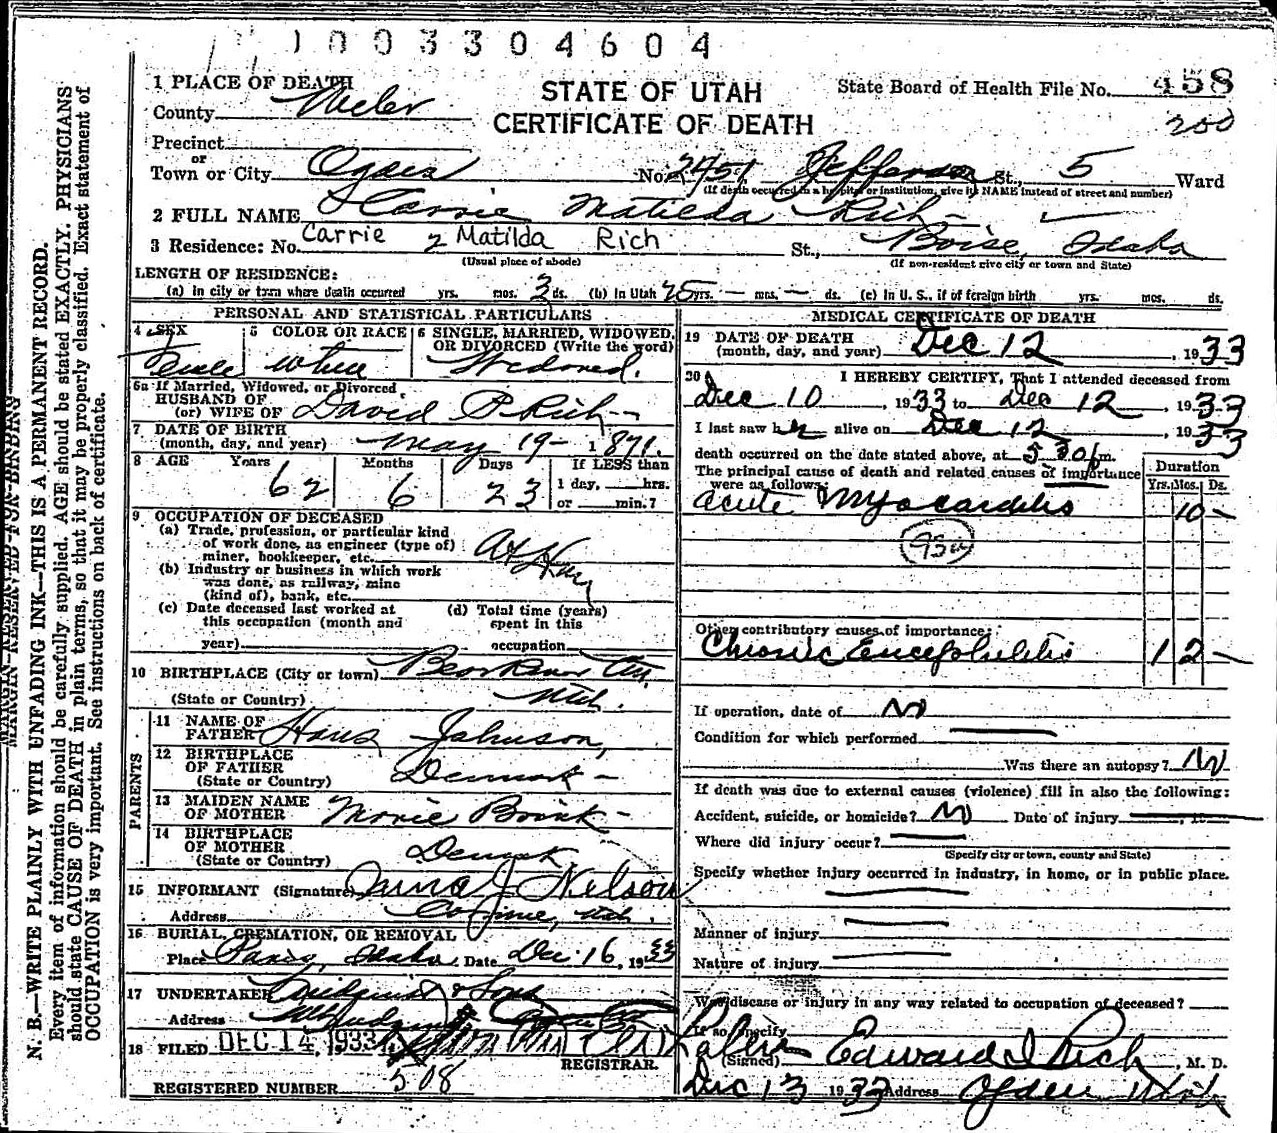 1003304604
1 PLACE OF DEATH
STATE OF UTAH
CERTIFICATE OF DEATH
State Board of Health File No. 458
200
County Weber
Precinct
or
Town or City Ogden No. 2451 Jefferson St., 5 Ward
(If death occurred in a hospital or institution, give its NAME instead of street and number)
2 FULL NAME Carrie Matilda Rich
Carrie Matilda Rich
3 Residence: No. St., Boise, Idaho
(Usual place of abode) (If non-resident give city or town and State)
LENGTH OF RESIDENCE:
(a) In city or town where death occurred yrs. mos. 3 ds. (b) In Utah 25 yrs. — mos. — ds. (c) In U. S., if of foreign birth yrs. mos. ds.
PERSONAL AND STATISTICAL PARTICULARS
4 SEX 5 COLOR OR RACE 6 SINGLE, MARRIED, WIDOWED, OR DIVORCED (Write the word)
Female white Widowed.
6a If Married, Widowed, or Divorced
HUSBAND OF
(or) WIFE OF David P Rich
7 DATE OF BIRTH
(month, day, and year) May 19 - 1871.
8 AGE Years Months Days If LESS than
62 6 23 1 day, hrs.
or min.?
9 OCCUPATION OF DECEASED
(a) Trade, profession, or particular kind
of work done, as engineer (type of)
miner, bookkeeper, etc. At Home
(b) Industry or business in which work
was done, as railway, mine
(kind of), bank, etc.
(c) Date deceased last worked at
this occupation (month and
year)
(d) Total time (years)
spent in this
occupation
10 BIRTHPLACE (City or town)
(State or Country) Utah.
PARENTS
11 NAME OF
FATHER Hans Johnson,
12 BIRTHPLACE
OF FATHER
(State or Country) Denmark -
13 MAIDEN NAME
OF MOTHER
14 BIRTHPLACE
OF MOTHER
(State or Country) Denmark
15 INFORMANT (Signature) J Nelson
Address Corinne, Utah.
16 BURIAL, CREMATION, OR REMOVAL
Place Paris, Idaho Date Dec 16, 1933
17 UNDERTAKER Lindquist & Sons
Address
18 FILED DEC 14 1933
REGISTRAR.
REGISTERED NUMBER 508
MEDICAL CERTIFICATE OF DEATH
19 DATE OF DEATH
(month, day, and year) Dec 12, 1933
20 I HEREBY CERTIFY, That I attended deceased from
Dec 10, 1933 to Dec 12, 1933
I last saw her alive on Dec 12, 1933
death occurred on the date stated above, at 5 30 p m.
The principal cause of death and related causes of importance
were as follows:
Duration
Yrs. Mos. Ds.
acute Myocarditis 10 —
93a
Other contributory causes of importance:
Chronic Encephalitis 1 2 —
If operation, date of No
Condition for which performed
Was there an autopsy? No
If death was due to external causes (violence) fill in also the following:
Accident, suicide, or homicide? No Date of injury , 19
Where did injury occur?
(Specify city or town, county and State)
Specify whether injury occurred in industry, in home, or in public place.
Manner of injury
Nature of injury
Was disease or injury in any way related to occupation of deceased?
If so, specify
(Signed) Edward I Rich, M. D.
Dec 13 1933 Address Ogden Utah
MARGIN RESERVED FOR BINDING
N. B.—WRITE PLAINLY WITH UNFADING INK—THIS IS A PERMANENT RECORD.
Every item of information should be carefully supplied. AGE should be stated EXACTLY. PHYSICIANS
should state CAUSE OF DEATH in plain terms, so that it may be properly classified. Exact statement of
OCCUPATION is very important. See instructions on back of certificate.